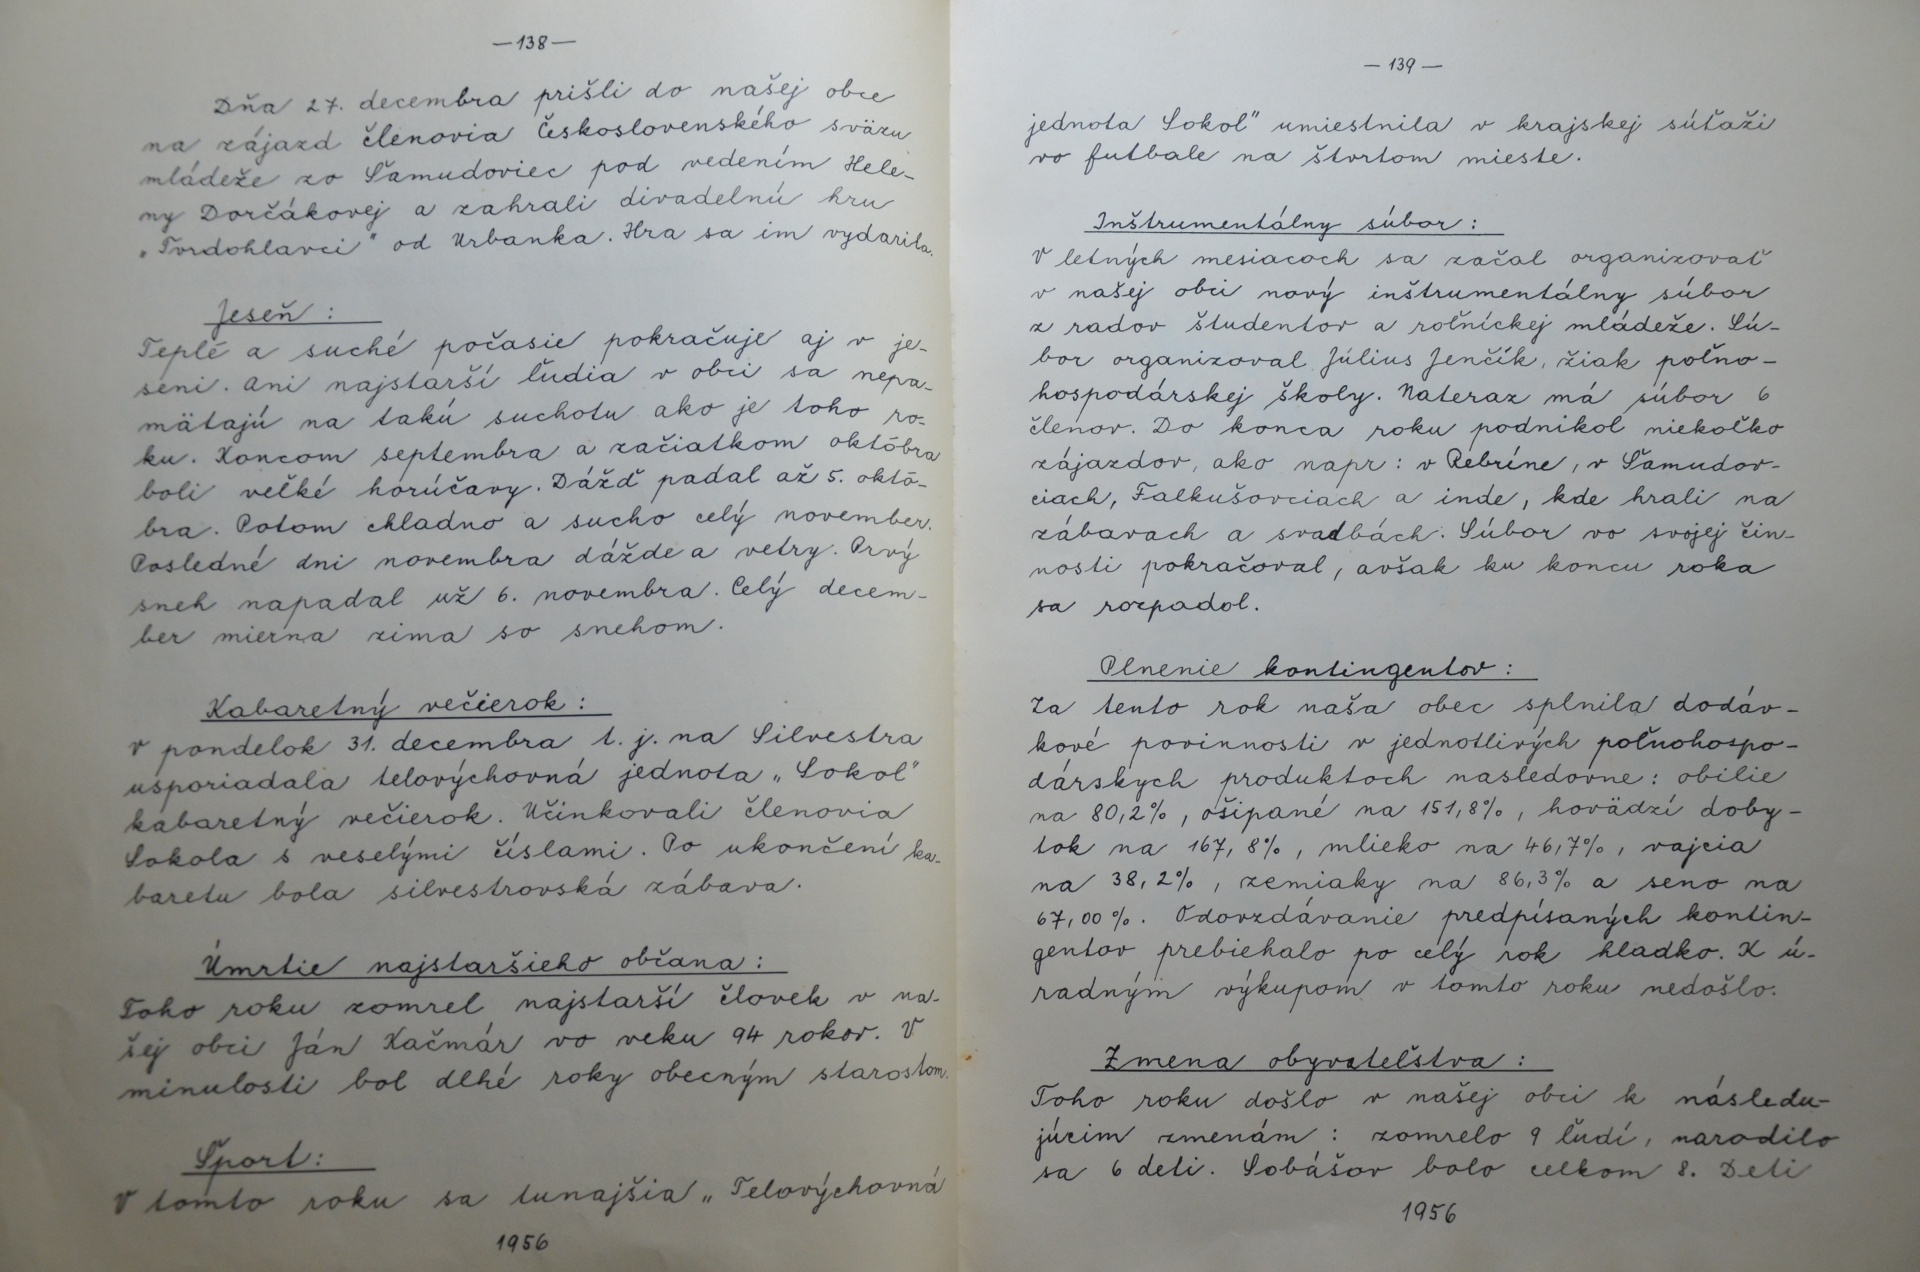 —138—
Dňa 27. decembra prišli do našej obce
na zájazd členovia Československého sväzu
mládeže zo Šamudoviec pod vedením Hele-
ny Dorčákovej a zahrali divadelnú hru
„Tvrdohlavci" od Urbanka. Hra sa im vydarila.
Jeseň :
Teplé a suché počasie pokračuje aj v je-
seni. Ani najstarší ľudia v obci sa nepa-
mätajú na takú suchotu ako je toho ro-
ku. Koncom septembra a začiatkom októbra
boli veľké horúčavy. Dážď padal až 5. októ-
bra. Potom chladno a sucho celý november.
Posledné dni novembra dážde a vetry. Prvý
sneh napadal už 6. novembra. Celý decem-
ber mierna zima so snehom.
Kabaretný večierok :
V pondelok 31. decembra t. j. na Silvestra
usporiadala telovýchovná jednota „Sokol"
kabaretný večierok. Učinkovali členovia
Sokola s veselými číslami. Po ukončení ka-
baretu bola silvestrovská zábava.
Úmrtie najstaršieho občana :
Toho roku zomrel najstarší človek v na-
šej obci Ján Kačmár vo veku 94 rokov. V
minulosti bol dlhé roky obecným starostom.
Šport :
V tomto roku sa tunajšia „Telovýchovná
1956
— 139 —
jednota Sokol" umiestnila v krajskej súťaži
vo futbale na štvrtom mieste.
Inštrumentálny súbor :
V letných mesiacoch sa začal organizovať
v našej obci nový inštrumentálny súbor
z radov študentov a roľníckej mládeže. Sú-
bor organizoval Július Jenčík, žiak poľno-
hospodárskej školy. Nateraz má súbor 6
členov. Do konca roku podnikol niekoľko
zájazdov, ako napr : v Rebríne, v Šamudov-
ciach, Falkušovciach a inde, kde hrali na
zábavach a svadbách. Súbor vo svojej čin-
nosti pokračoval, avšak ku koncu roka
sa rozpadol.
Plnenie kontingentov :
Za tento rok naša obec splnila dodáv-
kové povinnosti v jednotlivých poľnohospo-
dárskych produktoch nasledovne : obilie
na 80,2%, ošípané na 151,8%, hovädzí doby-
tok na 167,8%, mlieko na 46,7%, vajcia
na 38,2%, zemiaky na 86,3% a seno na
67,00%. Odovzdávanie predpísaných kontin-
gentov prebiehalo po celý rok hladko. K ú-
radným výkupom v tomto roku nedošlo.
Zmena obyvateľstva :
Toho roku došlo v našej obci k následu-
júcim zmenám : zomrelo 9 ľudí, narodilo
sa 6 detí. Sobášov bolo celkom 8. Deti
1956